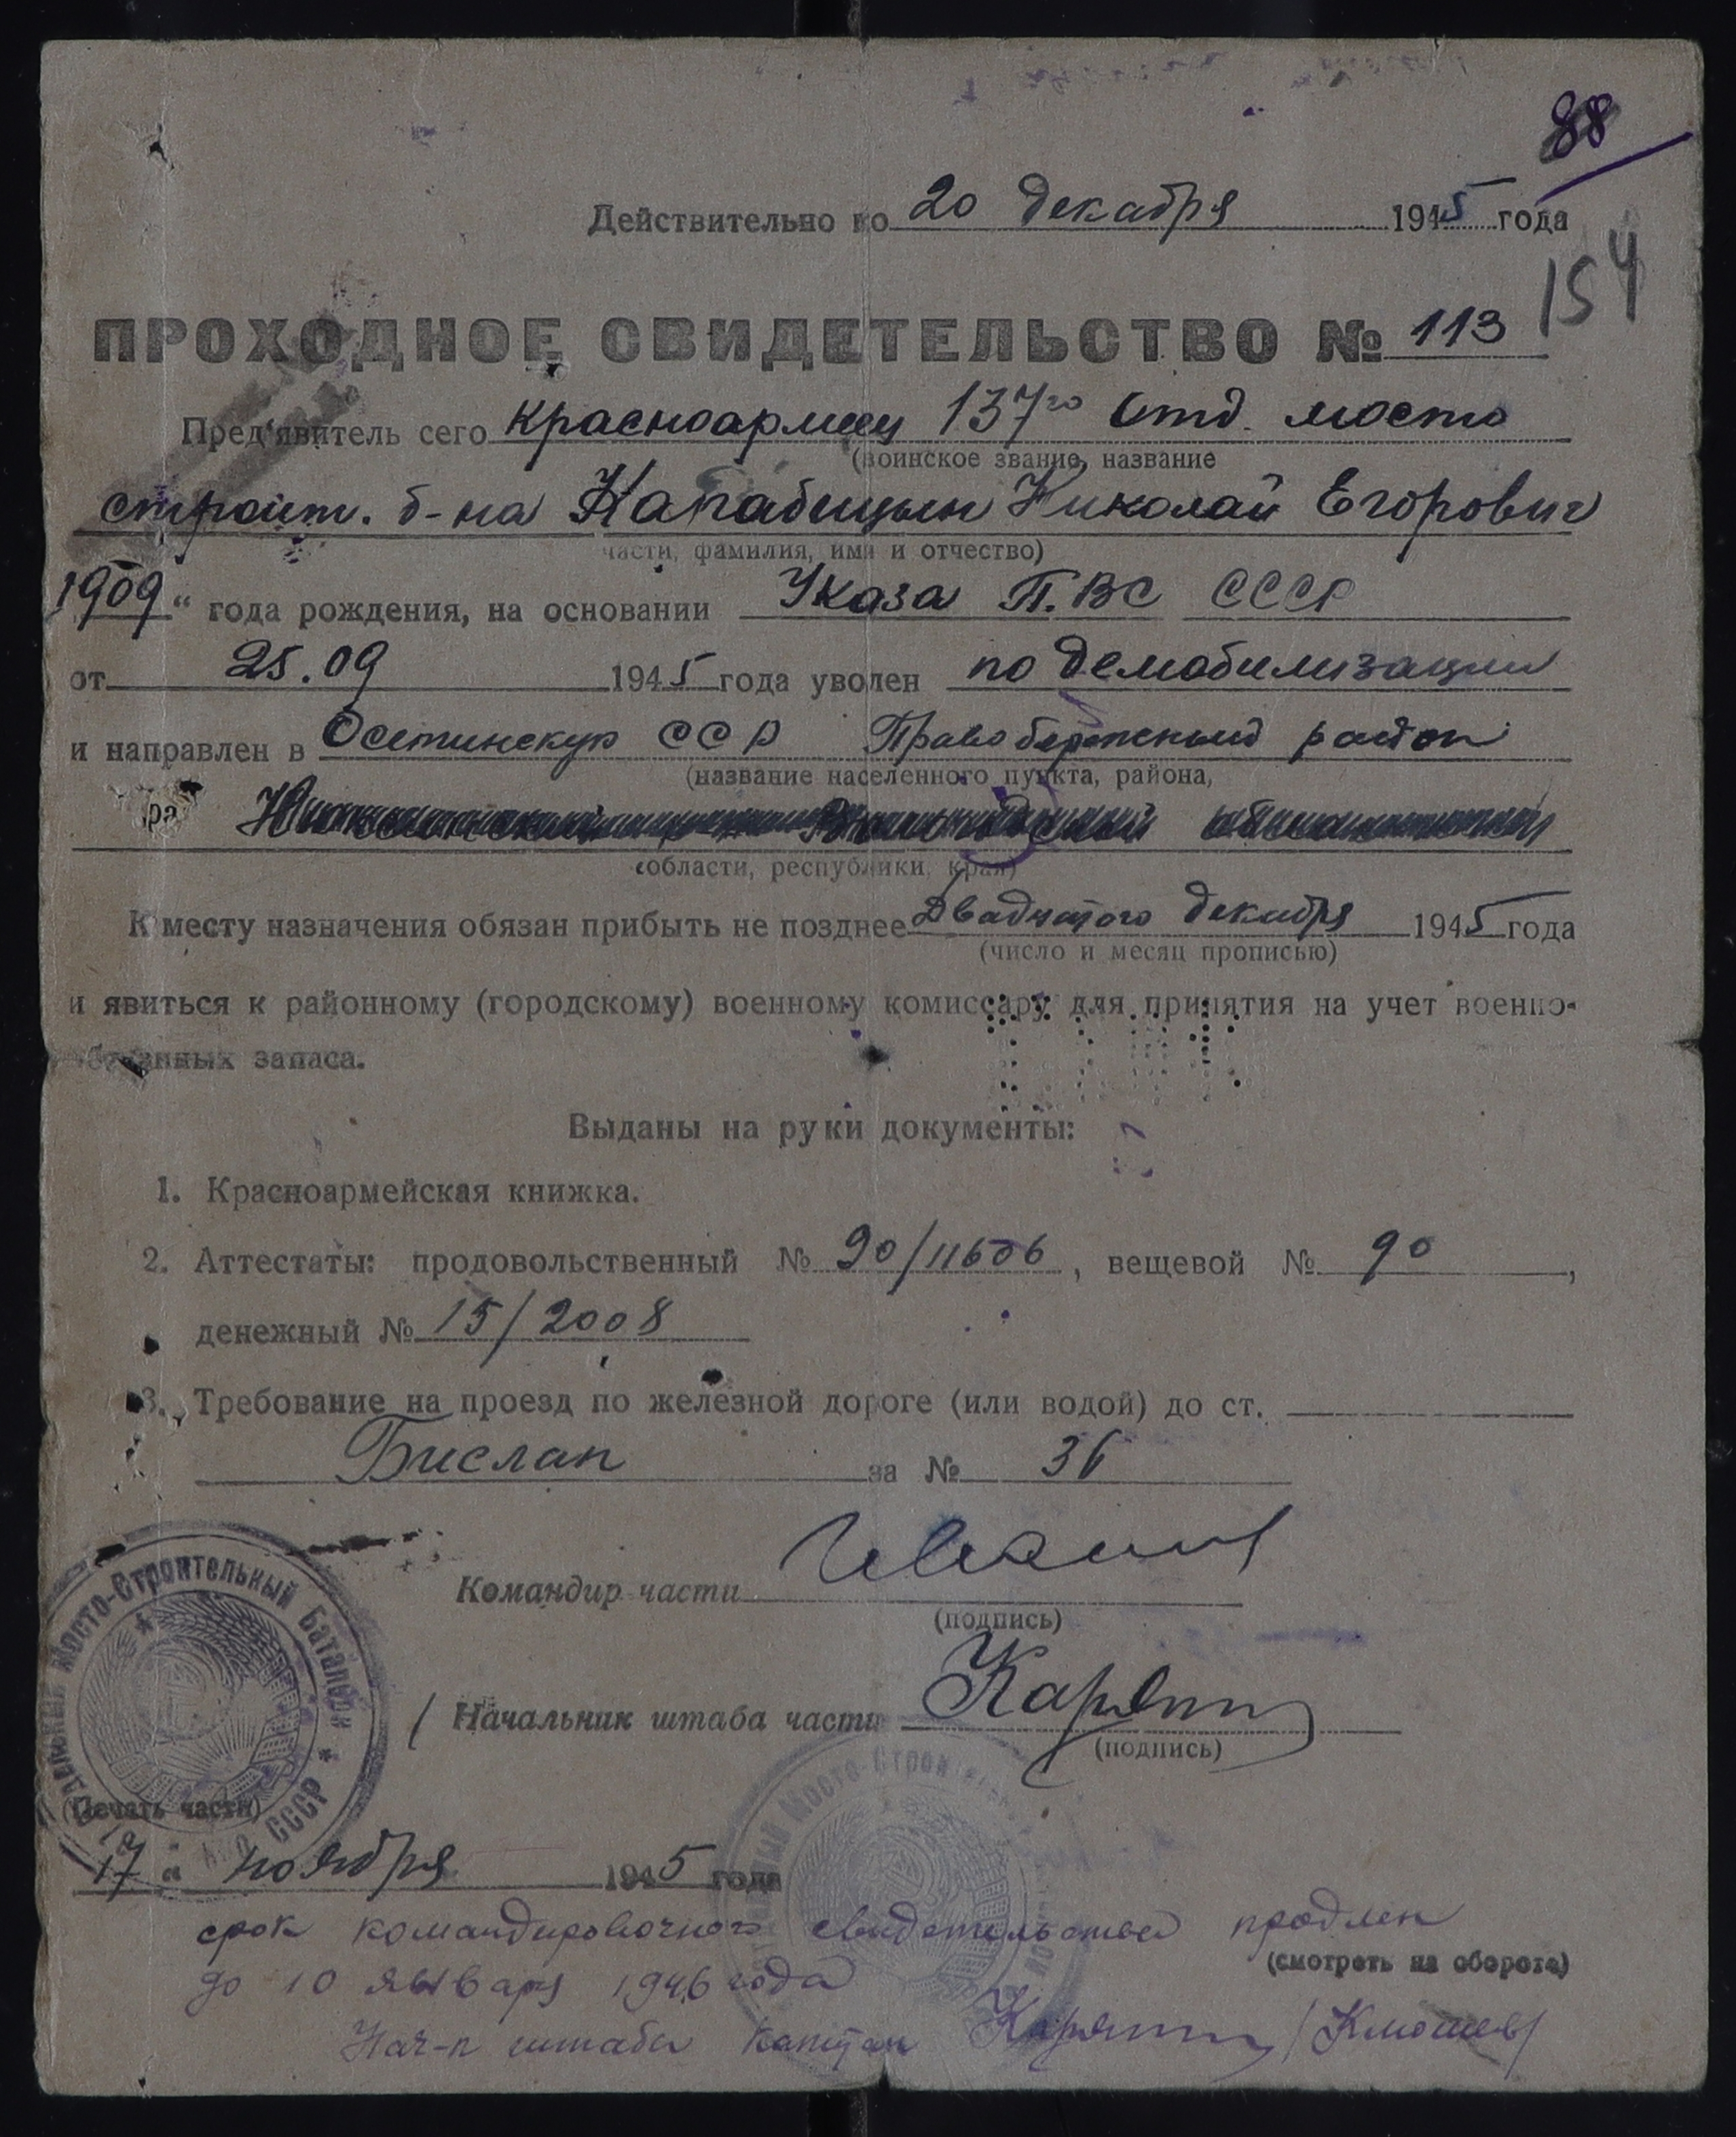 88
Действительно по 20 декабря 1945 года
154
ПРОХОДНОЕ СВИДЕТЕЛЬСТВО № 113
Пред'явитель сего красноармеец 137го отд. мосто
(воинское звание, название
строит. б-на Николай Егорович
части, фамилия, имя и отчество)
1909 " года рождения, на основании Указа П.ВС СССР
от 25.09 1945 года уволен по демобилизации
и направлен в Осетинскую ССР Правобережный район
(название населенного пункта, района,
области, республики, края)
К месту назначения обязан прибыть не позднее Двадцатого декабря 1945 года
(число и месяц прописью)
и явиться к районному (городскому) военному комиссару для принятия на учет военно-
обязанных запаса.
Выданы на руки документы:
1. Красноармейская книжка.
2. Аттестаты: продовольственный № 90/11606, вещевой № 90,
денежный № 15/2008
3. Требование на проезд по железной дороге (или водой) до ст.
Бислан за № 36
Командир части
(подпись)
Начальник штаба части
(подпись)
Мосто-Строительный Батальон
НКО СССР
(Печать части)
17 " ноября 1945 года
срок командировочного свидетельства продлен
(смотреть на обороте)
до 10 января 1946 года
Нач-к штаба капитан